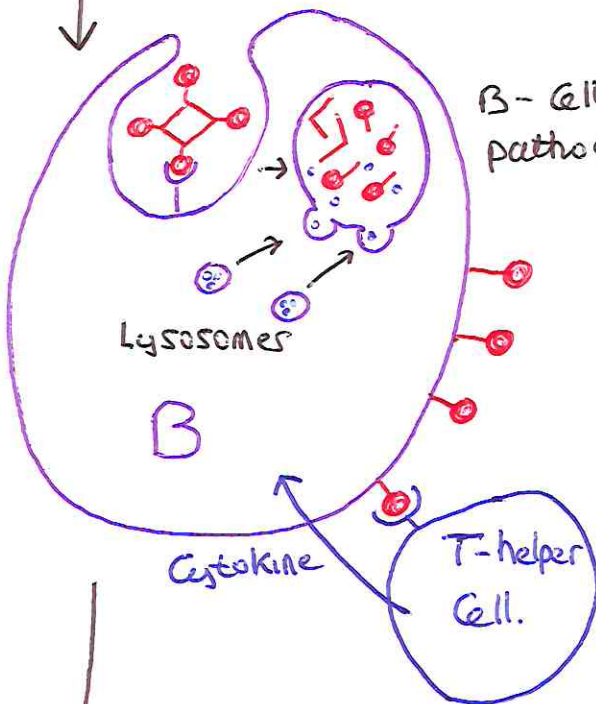 B-Cell
Lysosomes
B
Cytokine
T-helper
Cell.